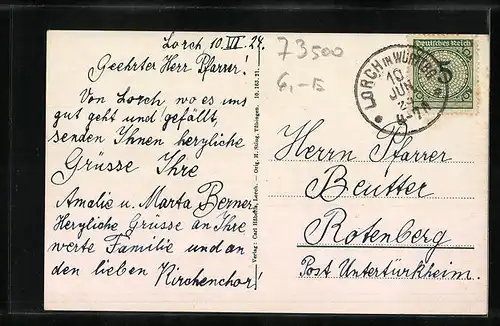 Lorch 10. VI. 24.
Geehrter Herr Pfarrer!
Von Lorch, wo es uns
gut geht und gefällt,
senden Ihnen herzliche
Grüsse Ihre
Amalie u. Marta Berner.
Herzliche Grüsse an Ihre
werte Familie und an
den lieben Kirchenchor!
73500
6,-
Verlag: Carl Lorch. – Orig. H. Sting, Tübingen. 10. 163. 21.
LORCH IN WÜRTT
10
JUN
Deutsches Reich
5
Herrn Pfarrer
Beutter
Rotenberg
Post Untertürkheim.